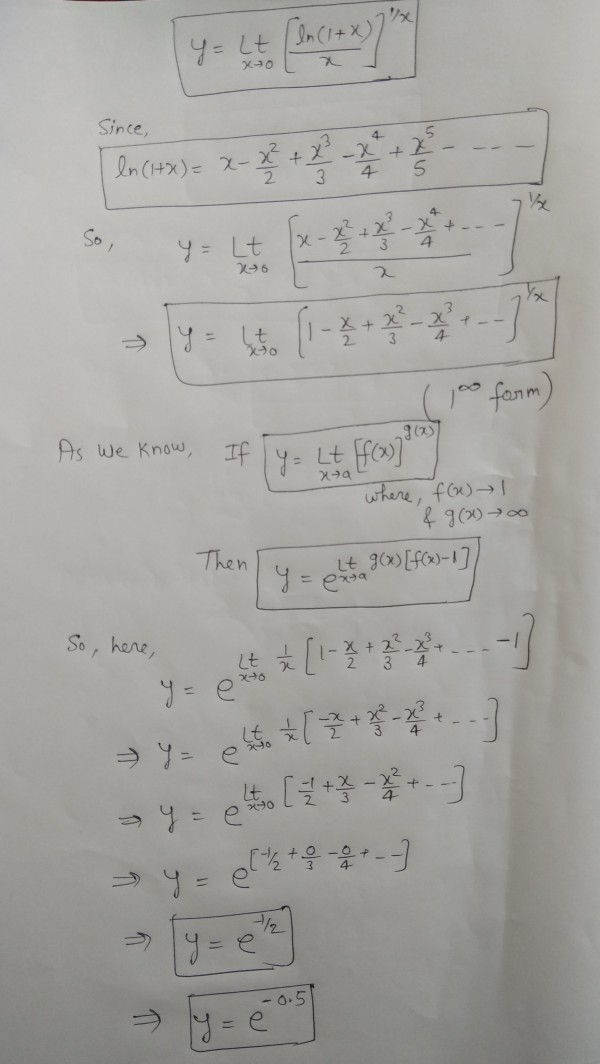 y = Lt x→0 [ln(1+x)/x]^1/x
Since,
ln(1+x) = x - x²/2 + x³/3 - x⁴/4 + x⁵/5 - -- --
So, y = Lt x→0 [(x - x²/2 + x³/3 - x⁴/4 + ---)/x]^1/x
⇒ y = Lt x→0 [1 - x/2 + x²/3 - x³/4 + --]^1/x
(1^∞ form)
As we know, If y = Lt x→a [f(x)]^g(x)
where, f(x)→1
& g(x)→∞
Then y = e^Lt x→a g(x)[f(x)-1]
So, here,
y = e^Lt x→0 1/x [1 - x/2 + x²/3 - x³/4 + ---- -1]
⇒ y = e^Lt x→0 1/x [-x/2 + x²/3 - x³/4 + ---]
⇒ y = e^Lt x→0 [-1/2 + x/3 - x²/4 + ---]
⇒ y = e^[-1/2 + 0/3 - 0/4 + ---]
⇒ y = e^-1/2
⇒ y = e^-0.5